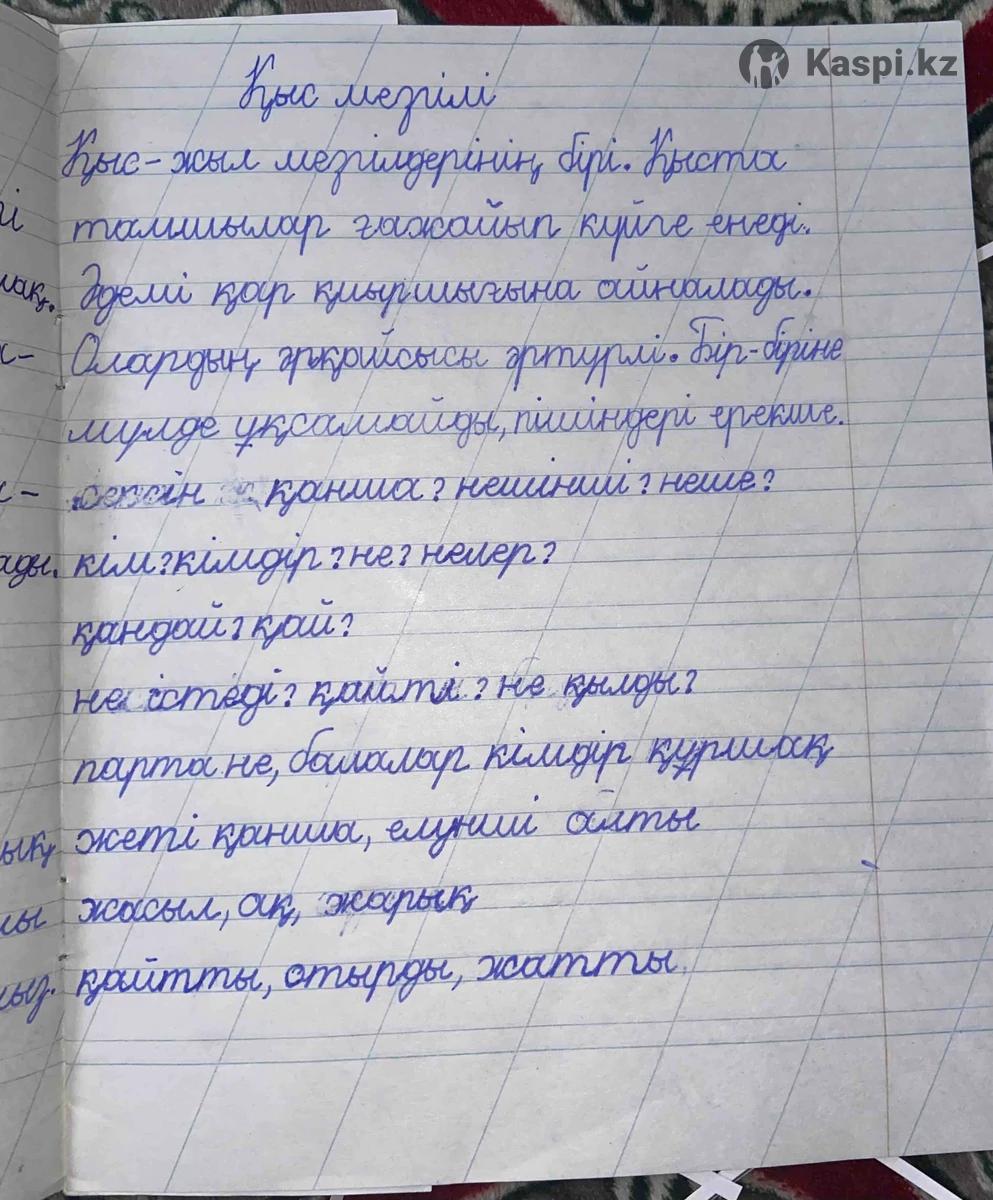 Kaspi.kz
Қыс мезгілі
Қыс-жыл мезгілдерінің бірі. Қыста
тамшылар ғажайып күйге енеді.
Әдемі қар қиыршығына айналады.
Олардың әрқайсысы әртүрлі. Бір-біріне
мүлде ұқсамайды, пішіндері ерекше.
қанша? нешінші? неше?
кім? кімдір? не? нелер?
қандай? қай?
не істеді? қайтті? не қылды?
парта не, балалар кімдір құршақ
жеті қанша, елунші алты
жасыл, ақ, жарық
қайтты, отырды, жатты